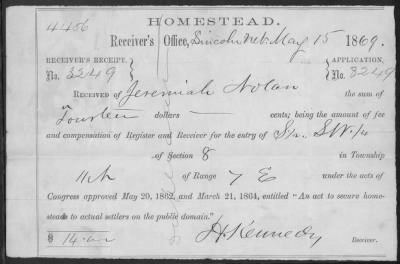 4486
HOMESTEAD.
Receiver's Office, Lincoln Neb. May 15 1869.
RECEIVER'S RECEIPT, APPLICATION,
No. 3249 No. 3249
RECEIVED of Jeremiah Nolan the sum of
Fourteen dollars — cents; being the amount of fee
and compensation of Register and Receiver for the entry of S/2 SW/4
of Section 8 in Township
11 N of Range 7 E under the acts of
Congress approved May 20, 1862, and March 21, 1864, entitled "An act to secure home-
steads to actual settlers on the public domain."
$ 14.00 H Kennedy Receiver.